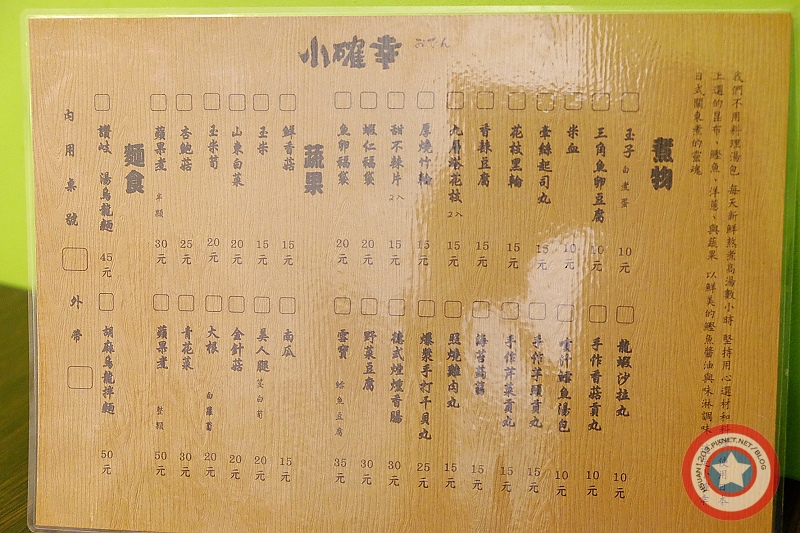 小確幸 おでん
我們不用料理湯包 每天新鮮熬煮高湯數小時 堅持用心選材和料
上選的昆布、鰹魚、洋蔥、與蔬果 以鮮美的鰹魚醬油與味淋調味
日式關東煮的靈魂
使用日本
煮物
玉子 白煮蛋 10元
三角魚卵豆腐 10元
米血 10元
牽絲起司丸 15元
花枝黑輪 15元
香辣豆腐 15元
九層塔花枝 2入 15元
厚燒竹輪 15元
甜不辣片 2入 15元
蝦仁福袋 20元
魚卵福袋 20元
龍蝦沙拉丸 10元
手作香菇貢丸 10元
噴汁鱈魚湯包 10元
手作芋頭貢丸 15元
手作芹菜貢丸 15元
海苔蒟蒻 15元
照燒雞肉丸 15元
爆漿手打干貝丸 25元
德式煙燻香腸 30元
野菜豆腐 30元
雪寶 鱈魚豆腐 35元
蔬果
鮮香菇 15元
玉米 15元
山東白菜 20元
玉米筍 20元
杏鮑菇 25元
蘋果煮 半顆 30元
南瓜 15元
美人腿 茭白筍 20元
金針菇 20元
大根 白蘿蔔 20元
青花菜 30元
蘋果煮 整顆 50元
麵食
讚岐 湯烏龍麵 45元
胡麻烏龍拌麵 50元
內用桌號 外帶
HSUAN1203.PIXNET.NET/BLOG